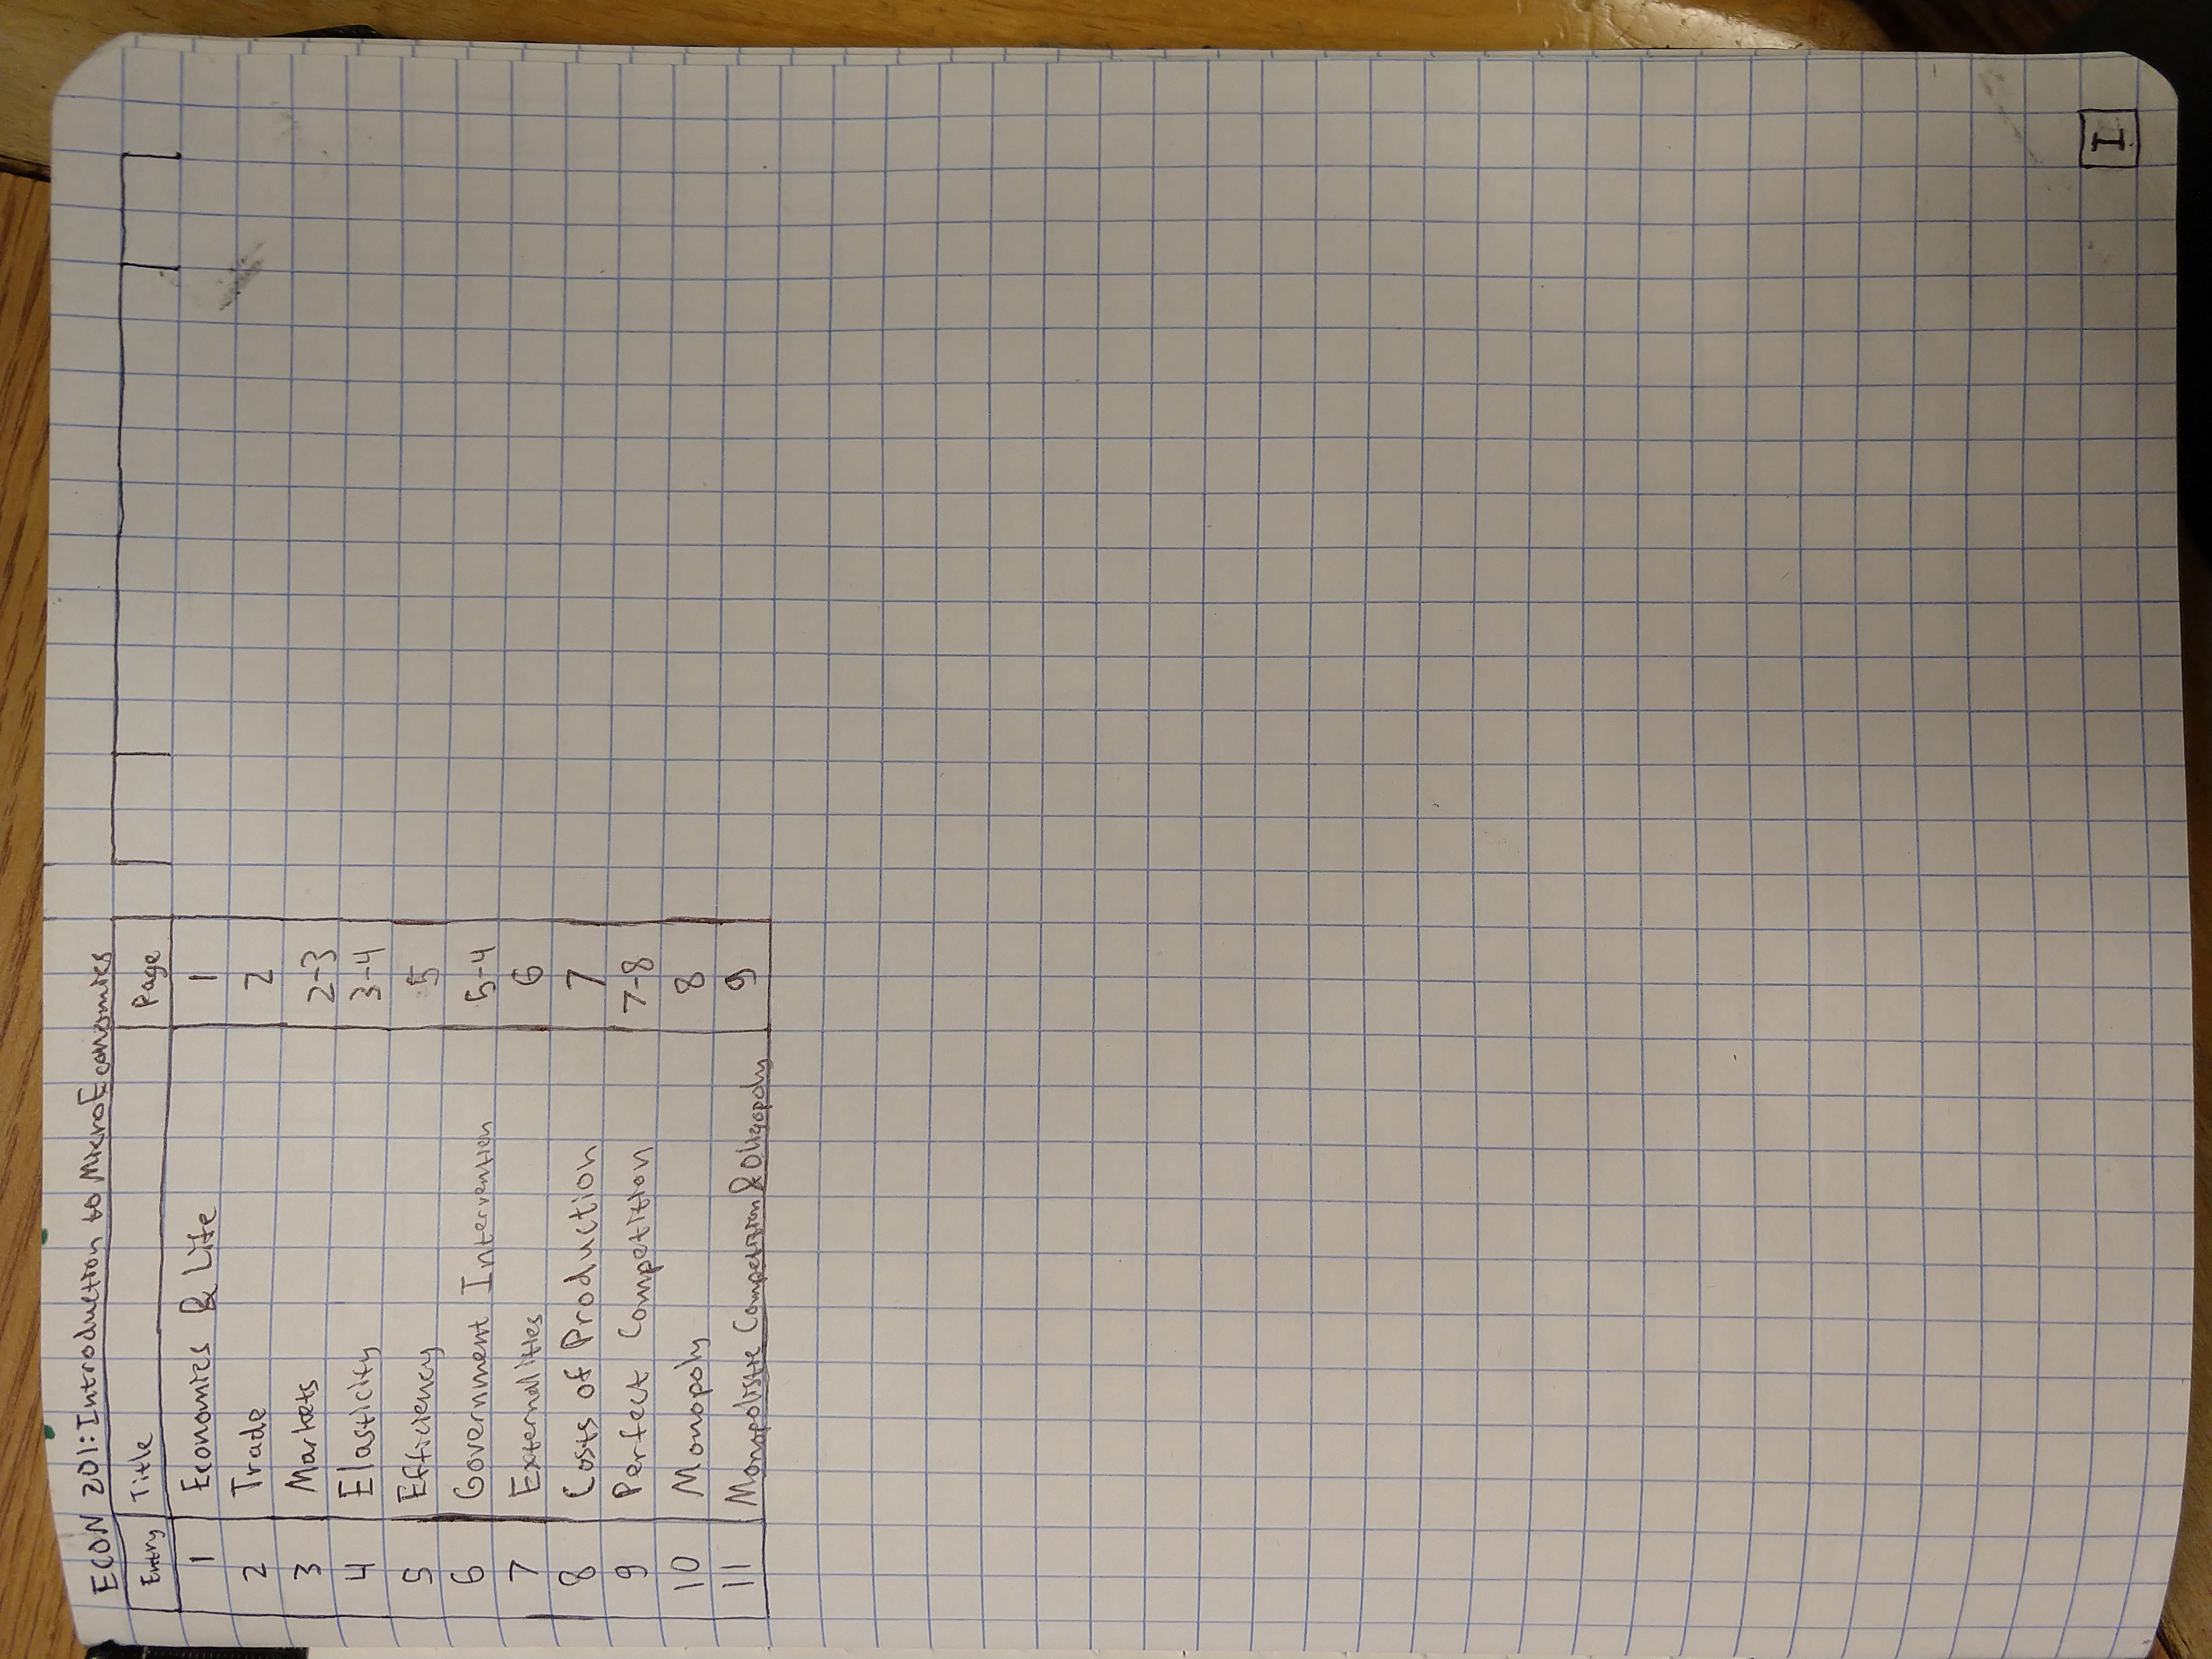 ECON 201: Introduction to MicroEconomics
Entry Title Page
1 Economics & Life 1
2 Trade 2
3 Markets 2-3
4 Elasticity 3-4
5 Efficiency 5
6 Government Intervention 5-4
7 Externalities 6
8 Costs of Production 7
9 Perfect Competition 7-8
10 Monopoly 8
11 Monopolistic Competition & Oligopoly 9
I